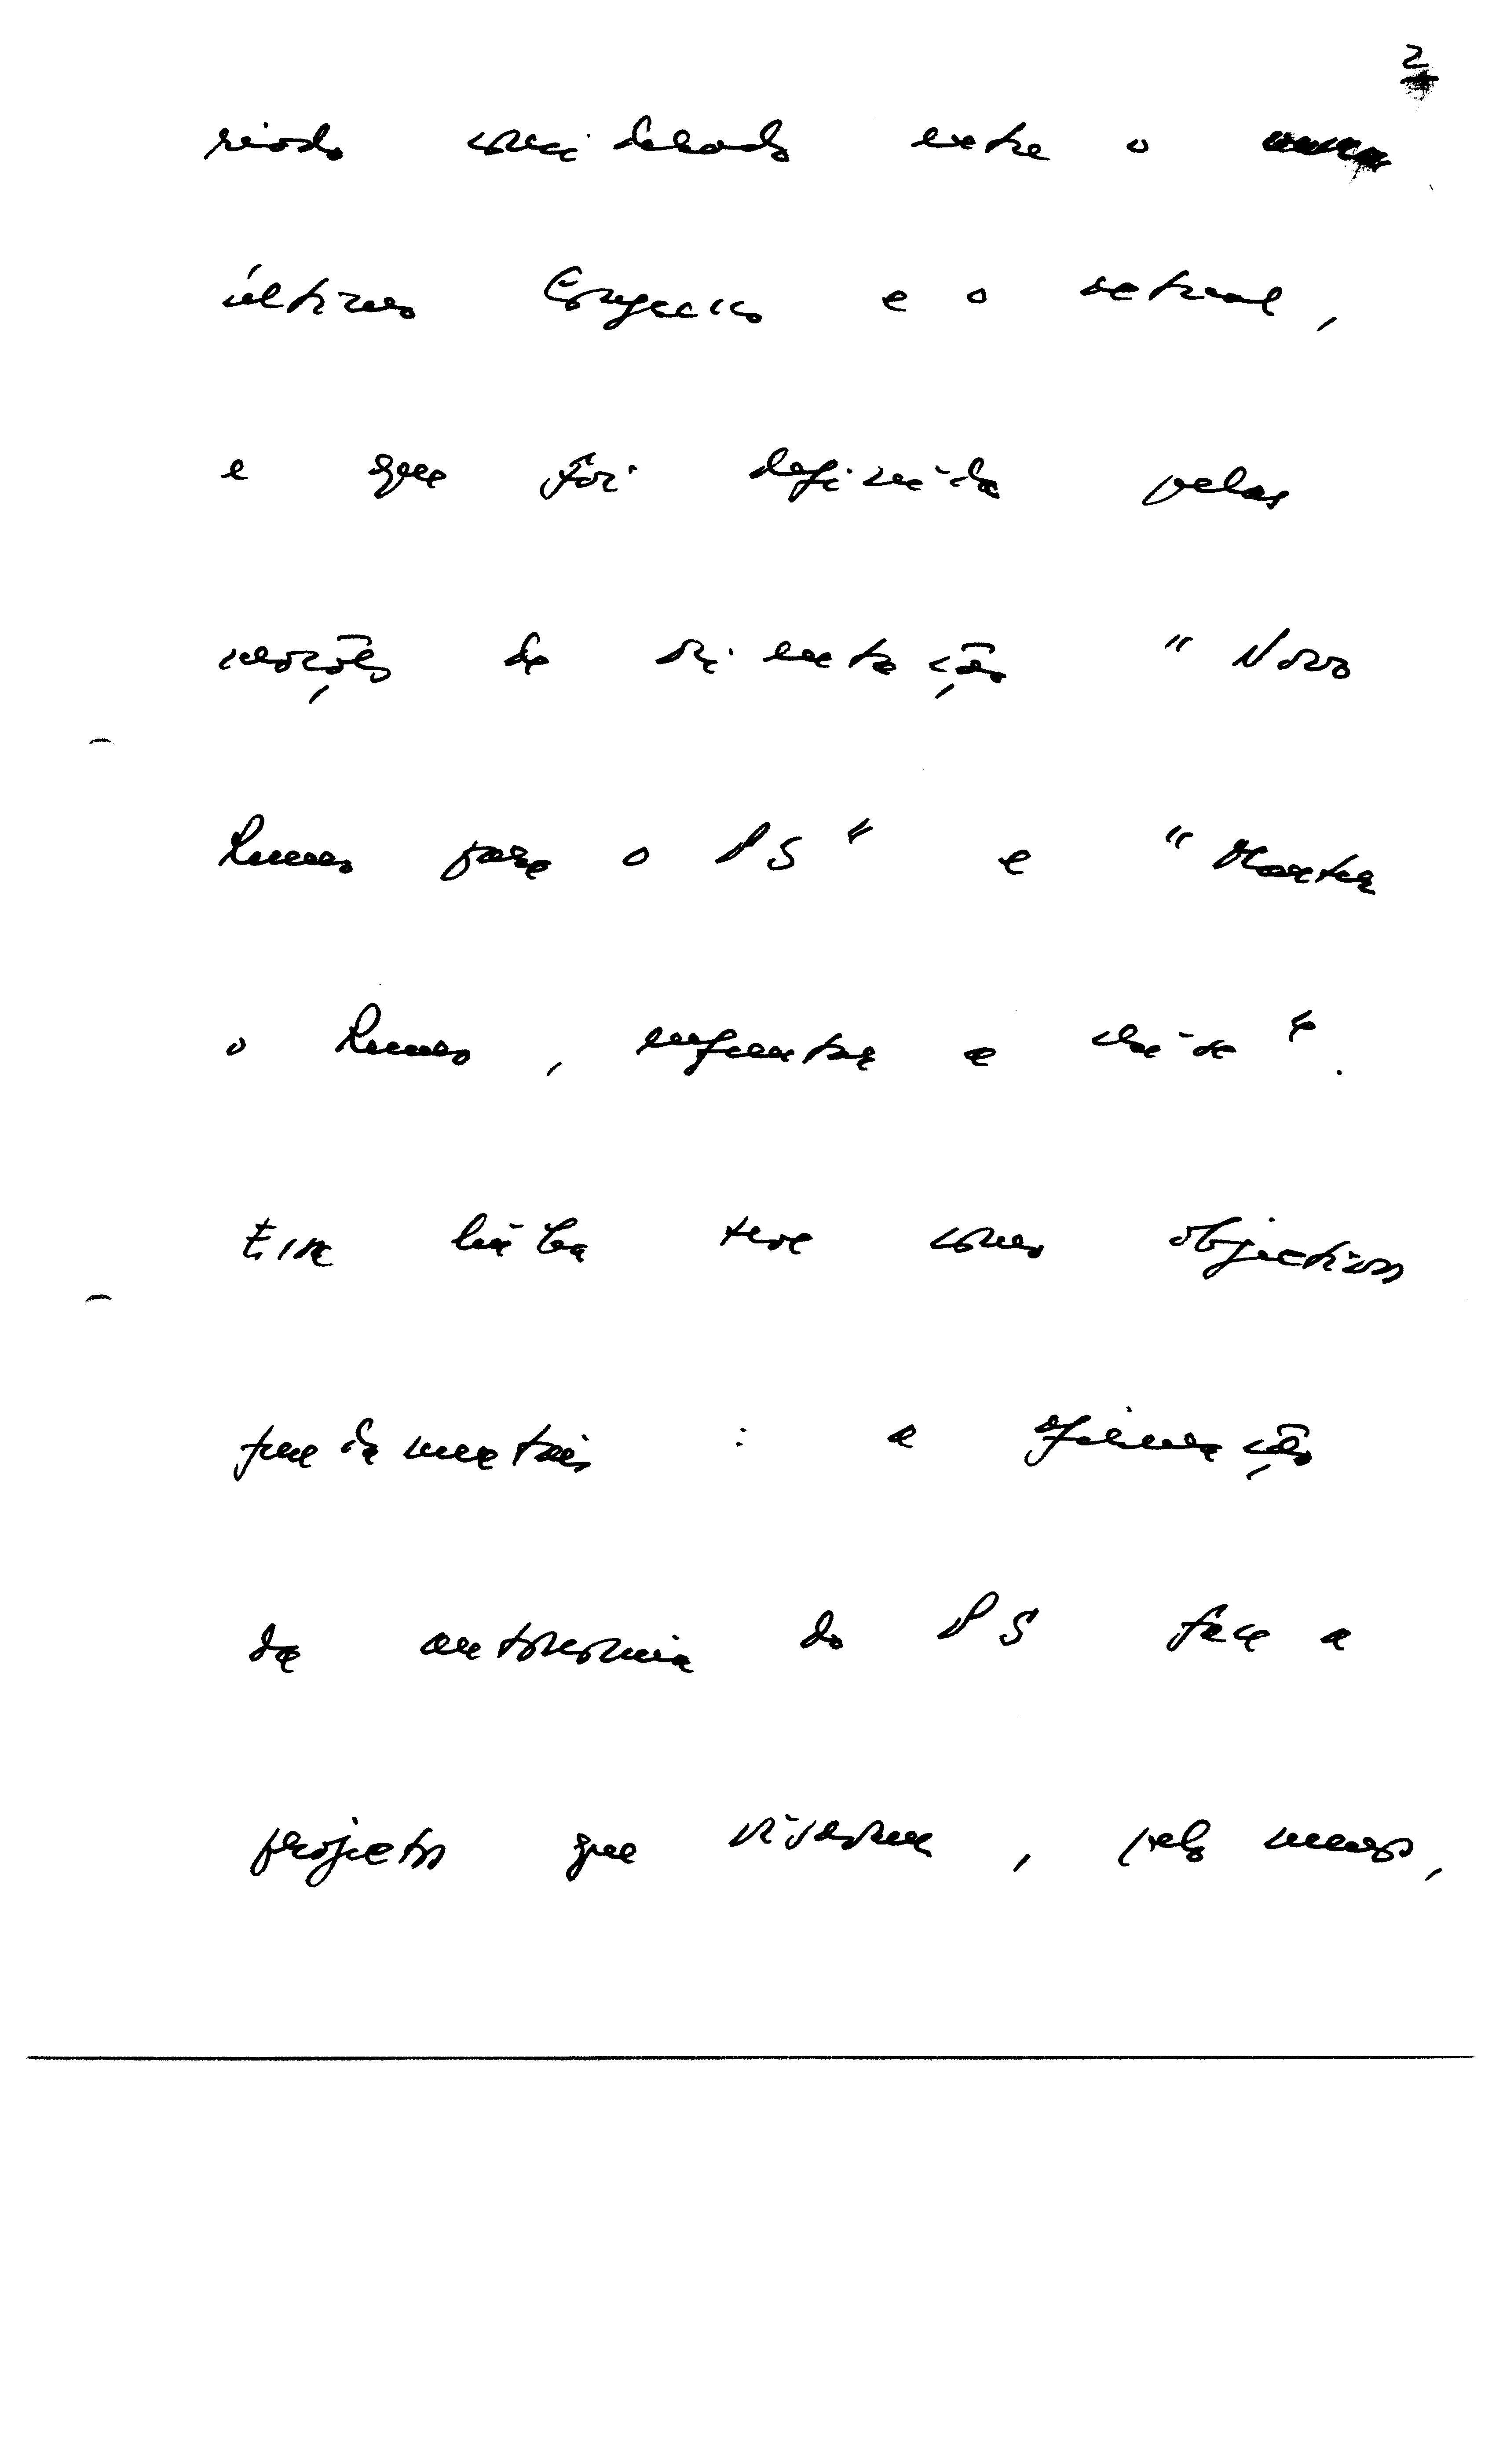 2
ríodo considerado entre o
último Congresso e o actual,
e que foi definida pelas
moções de orientação "Novo
Rumo para o PS" e "Manter
o Rumo, enfrentar a crise".
Essa linha teve como objectivos
fundamentais : a afirmação
da autonomia do PS face a
projectos que visavam, pelo menos,